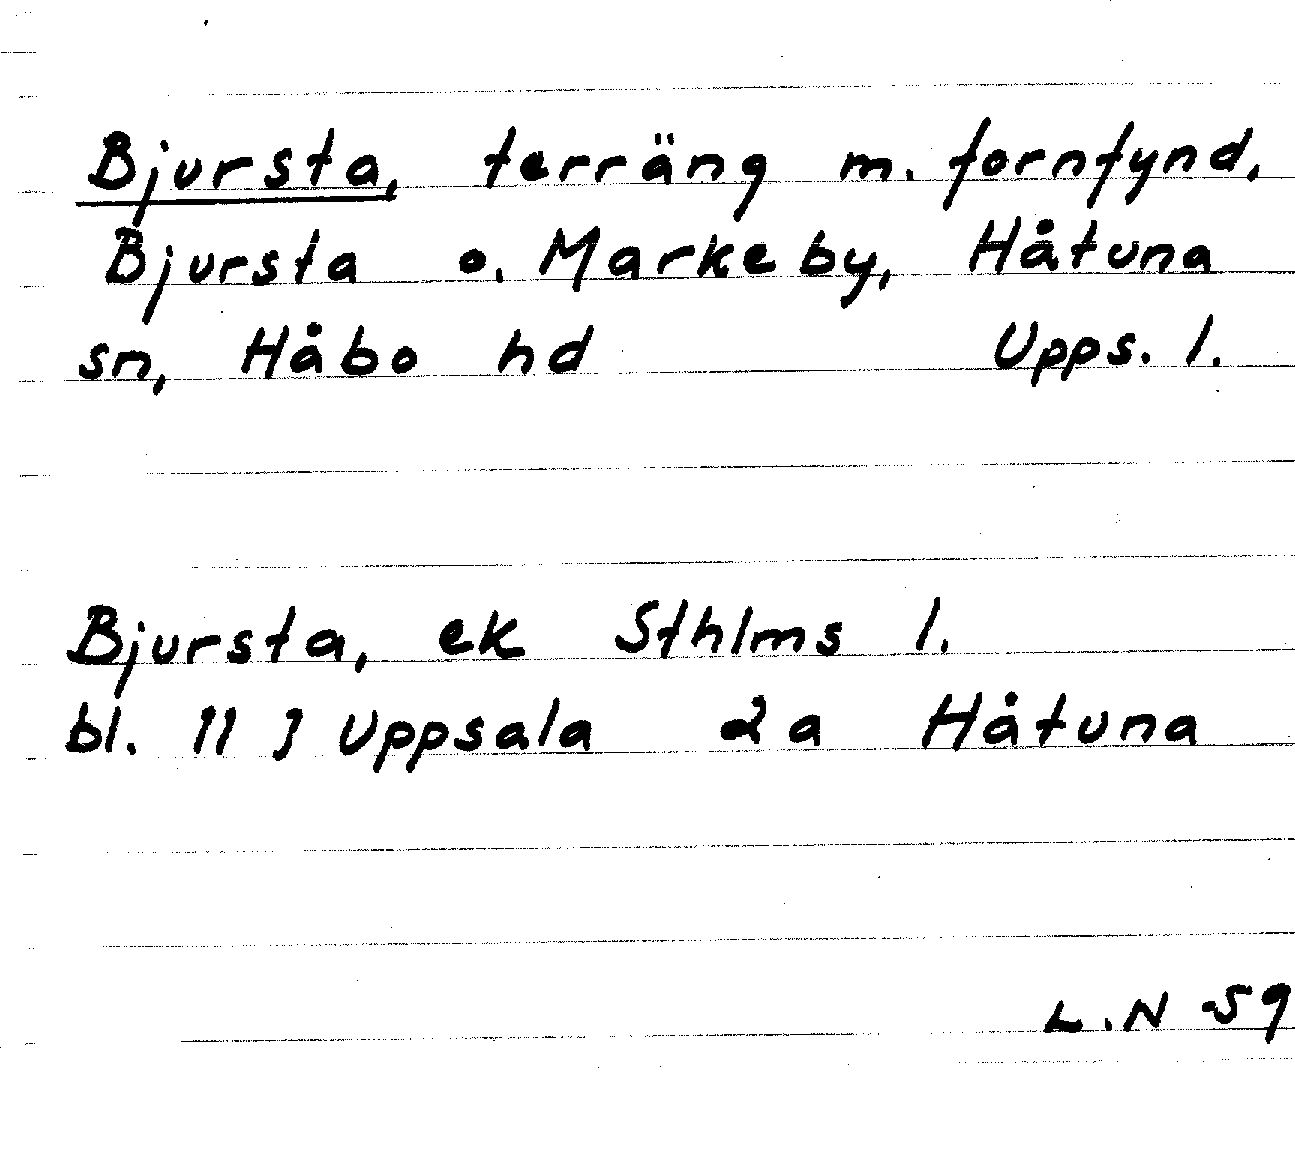 Bjursta, terräng m. fornfynd,
Bjursta o. Markeby, Håtuna
sn, Håbo hd Upps. l.
Bjursta, ek Sthlms l.
bl. 11 J Uppsala 2a Håtuna
L.N -59